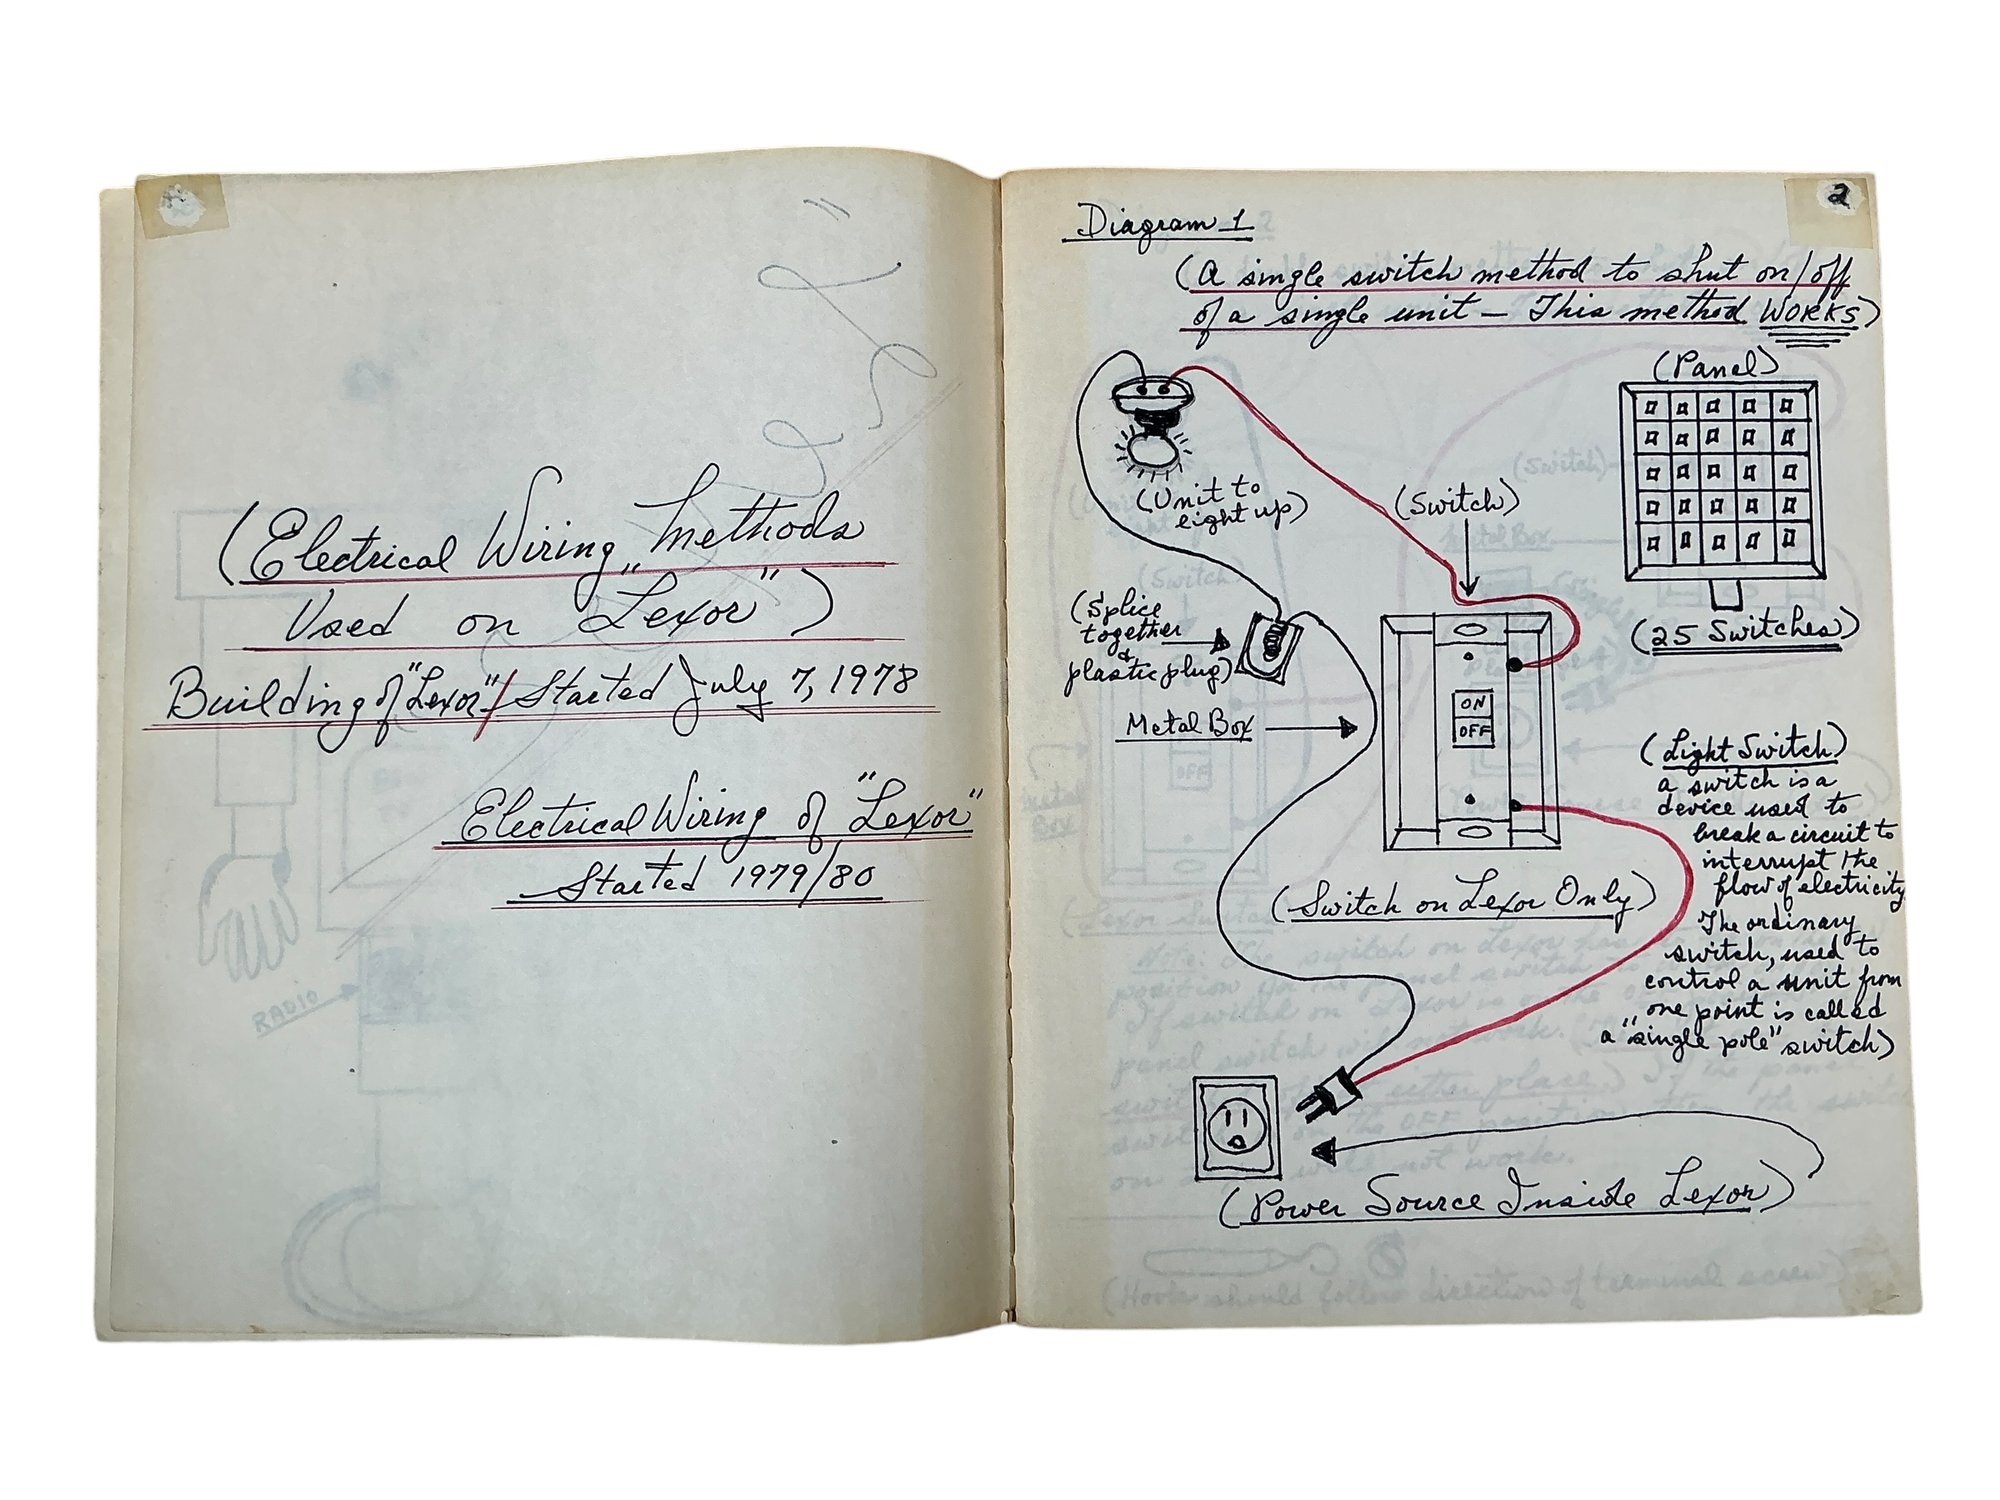 (Electrical Wiring Methods
Used on "Lexor")
Building of "Lexor"/Started July 7, 1978
Electrical Wiring of "Lexor"
Started 1979/80
2
Diagram 1
(A single switch method to shut on/off
of a single unit — This method WORKS)
(Panel)
(25 Switches)
(Unit to
light up)
(Switch)
(Splice
together
&
plastic plug)
Metal Box
ON
OFF
(Switch on Lexor Only)
(Light Switch)
a switch is a
device used to
break a circuit to
interrupt the
flow of electricity
The ordinary
switch, used to
control a unit from
one point is called
a "single pole" switch)
(Power Source Inside Lexor)
RADIO
(Hooks should follow direction of terminal screw)